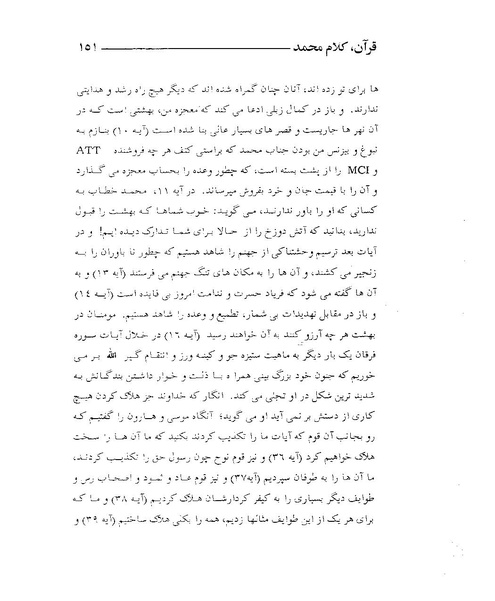 قرآن، کلام محمد ۱۵۱
ها برای تو زده اند، آنان چنان گمراه شده اند که دیگر هیچ راه رشد و هدایتی
ندارند. و باز در کمال زبلی ادعا می کند که معجزه من، بهشتی است که در
آن نهر ها جاریست و قصر های بسیار عالی بنا شده است (آیه ۱۰) بنازم به
نبوغ و بیزنس من بودن جناب محمد که براستی کتف هر چه فروشنده ATT
و MCI را از پشت بسته است، که چطور وعده را بحساب معجزه می گذارد
و آن را با قیمت جان و خرد بفروش میرساند. در آیه ۱۱، محمد خطاب به
کسانی که او را باور ندارند، می گوید: خوب شماها که بهشت را قبول
ندارید، بدانید که آتش دوزخ را از حالا برای شما تدارک دیده ایم! و در
آیات بعد ترسیم وحشتناکی از جهنم را شاهد هستیم که چطور نا باوران را به
زنجیر می کشند، و آن ها را به مکان های تنگ جهنم می فرستند (آیه ۱۳) و به
آن ها گفته می شود که فریاد حسرت و ندامت امروز بی فایده است (آیه ۱۴)
و باز در مقابل تهدیدات بی شمار، تطمیع و وعده را شاهد هستیم. مومنان در
بهشت هر چه آرزو کنند به آن خواهند رسید (آیه ۱۶) در خلال آیات سوره
فرقان یک بار دیگر به ماهیت ستیزه جو و کینه ورز و انتقام گیر الله بر می
خوریم که جنون خود بزرگ بینی همراه با ذلت و خوار داشتن بندگانش به
شدید ترین شکل در او تجلی می کند. انگار که خداوند جز هلاک کردن هیچ
کاری از دستش بر نمی آید او می گوید؛ آنگاه موسی و هارون را گفتیم که
رو بجانب آن قوم که آیات ما را تکذیب کردند بکنید که ما آن ها را سخت
هلاک خواهیم کرد (آیه ۳۶) و نیز قوم نوح چون رسول حق را تکذیب کردند،
ما آن ها را به طوفان سپردیم (آیه۳۷) و نیز قوم عاد و ثمود و اصحاب رس و
طوایف دیگر بسیاری را به کیفر کردارشان هلاک کردیم (آیه ۳۸) و ما که
برای هر یک از این طوایف مثالها زدیم، همه را بکلی هلاک ساختیم (آیه ۳۹) و